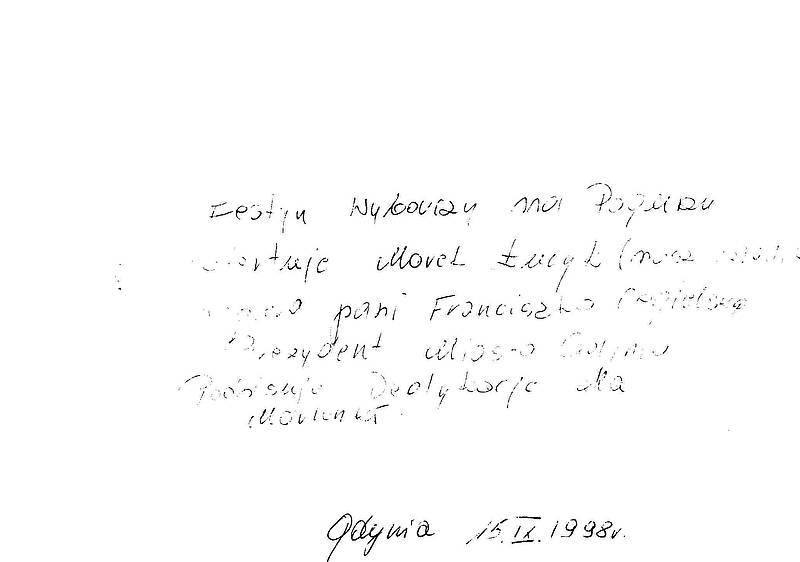 Festyn Wyborczy na Pogórzu
Marek Łucyk (nasz
pani Franciszka Cegielska
Prezydent Miasta Gdyni
Podpisuje Dedykację dla
Gdynia 15.IX.1998r.